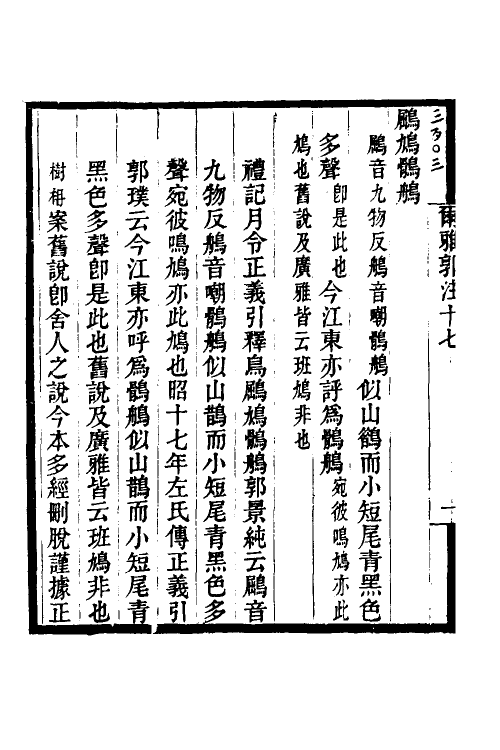 三百〇三
爾雅郭注十七
一
鶌鳩鶻鵃
鶌音九物反鵃音嘲鶻鵃似山鵲而小短尾青黑色
多聲卽是此也今江東亦評爲鶻鵃宛彼鳴鳩亦此
鳩也舊說及廣雅皆云班鳩非也
禮記月令正義引釋鳥鶌鳩鶻鵃郭景純云鶌音
九物反鵃音嘲鶻鵃似山鵲而小短尾青黑色多
聲宛彼鳴鳩亦此鳩也昭十七年左氏傳正義引
郭璞云今江東亦呼爲鶻鵃似山鵲而小短尾青
黑色多聲卽是此也舊說及廣雅皆云班鳩非也
樹枏案舊說卽舍人之說今本多經刪脫謹據正